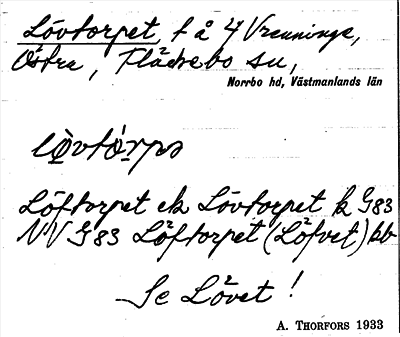 Lövtorpet, t å 4 Vrenninge,
Östra, Fläckebo sn,
Norrbo hd, Västmanlands län
lòvtórps
Löftorpet ek Lövtorpet k G83
NV G83 Löftorpet (Löfvet) kb
Se Lövet!
A. THORFORS 1933